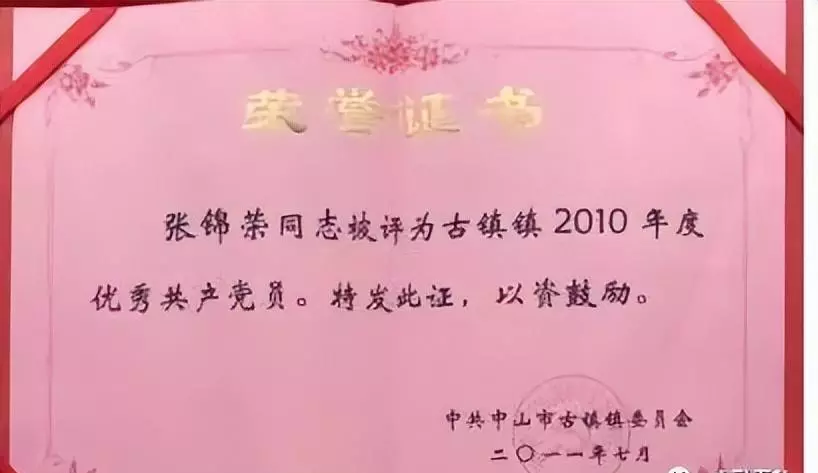 荣誉证书
张锦荣同志被评为古镇镇2010年度
优秀共产党员。特发此证，以资鼓励。
中共中山市古镇镇委员会
二〇一一年七月